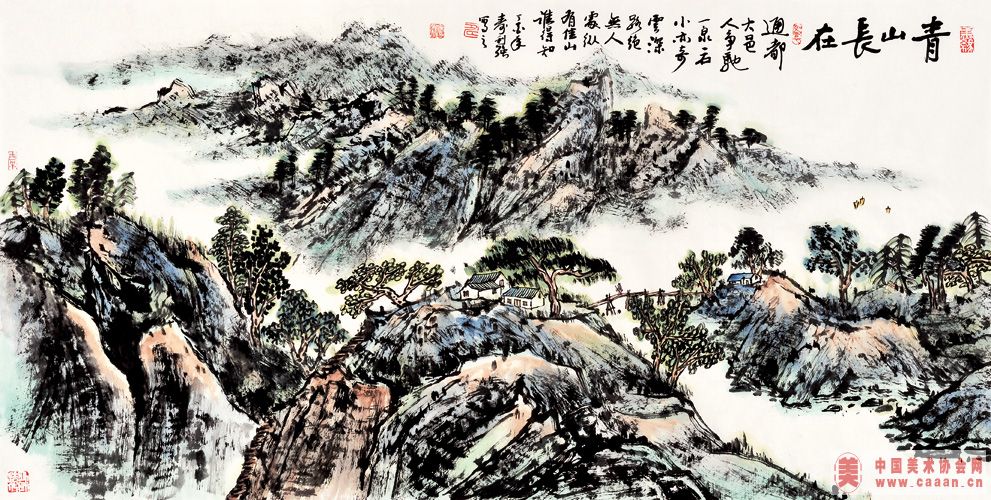 青山長在
通都
大邑
人争馳
一泉石
小亦奇
雲深
路絕
無人
處縱
有佳山
誰得知
寫之
美
中国美术协会网
www.caaan.cn